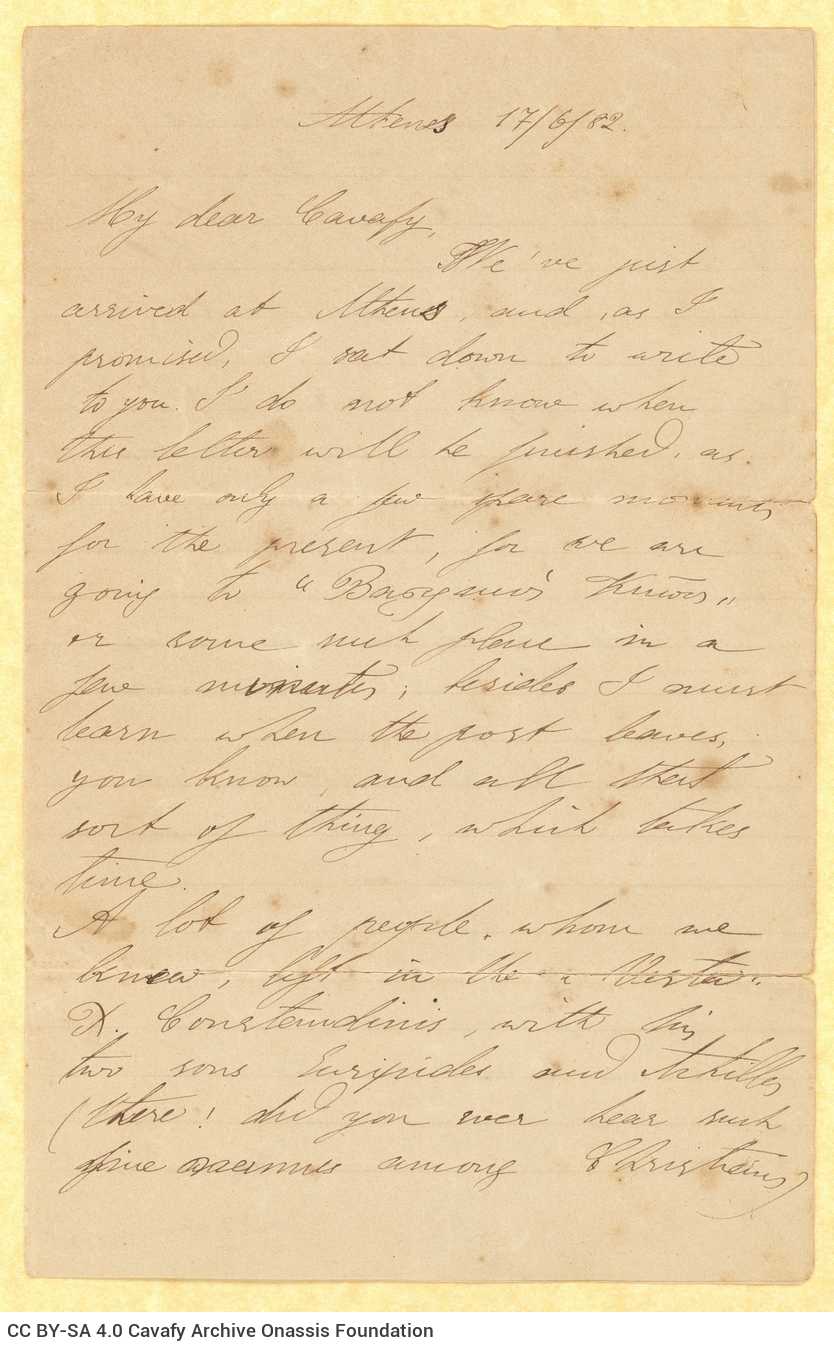 Athens 17/6/82.
My dear Cavafy,
We've just
arrived at Athens, and, as I
promised, I sat down to write
to you. I do not know when
this letter will be finished, as
I have only a few spare moments
for the present, for we are
going to "
or some such place in a
few minutes; besides I must
learn when the post leaves,
you know, and all that
sort of thing, which takes
time.
A lot of people, whom we
knew, left in the "Vesta".
Constandinis, with his
two sons Euripides and Achilles
(there! did you ever hear such
fine names among Christians)
CC BY-SA 4.0 Cavafy Archive Onassis Foundation